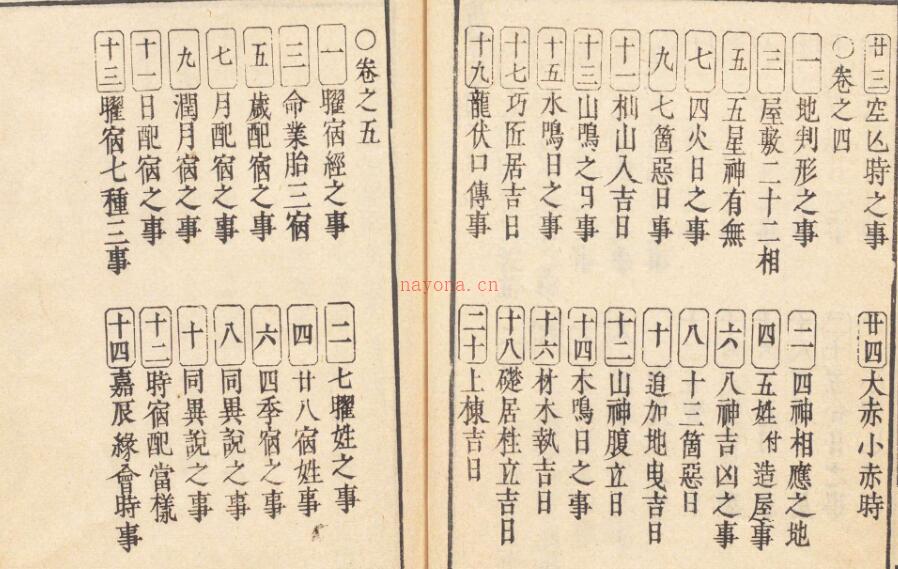 廿三 空亡時之事
廿四 大赤小赤時
○卷之四
一 地判形之事
二 四神相應之地
三 屋敷二十二相
四 五姓付造屋事
五 五星神有無
六 八神吉凶之事
七 四火日之事
八 十三箇惡日
九 七箇惡日事
十 追加地曳吉日
十一 杣山入吉日
十二 山神腹立日
十三 山鳴之日事
十四 木鳴日之事
十五 水鳴日之事
十六 材木執吉日
十七 巧匠居吉日
十八 礎居柱立吉日
十九 龍伏口傳事
二十 上棟吉日
○卷之五
一 曜宿經之事
二 七曜姓之事
三 命業胎三宿
四 廿八宿姓事
五 歲配宿之事
六 四季宿之事
七 月配宿之事
八 同異說之事
九 潤月宿之事
十 同異說之事
十一 日配宿之事
十二 時宿配當樣
十三 曜宿七種三事
十四 嘉辰緣會時事
nayona.cn